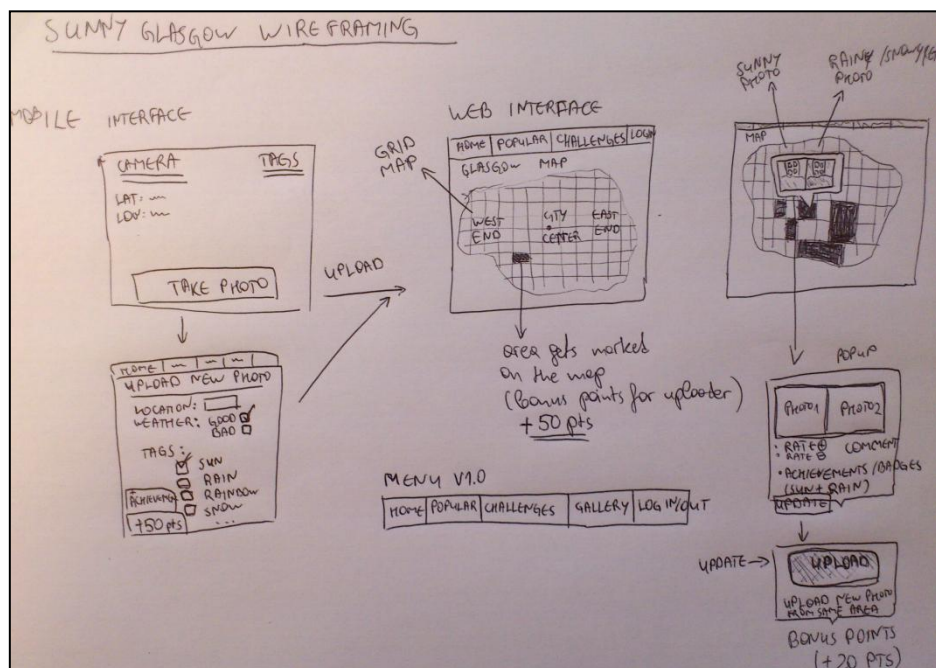 SUNNY GLASGOW WIREFRAMING
MOBILE INTERFACE
CAMERA
TAGS
LAT:
LON:
TAKE PHOTO
UPLOAD
HOME
UPLOAD NEW PHOTO
LOCATION:
WEATHER: GOOD
BAD
TAGS:
SUN
RAIN
RAINBOW
SNOW
...
+50 pts
WEB INTERFACE
GRID
MAP
HOME POPULAR CHALLENGES LOGIN
GLASGOW MAP
WEST
END
CITY
CENTER
EAST
END
area gets marked
on the map
(bonus points for uploader)
+50 pts
MENU V1.0
HOME POPULAR CHALLENGES GALLERY LOG IN/OUT
SUNNY
PHOTO
MAP
POPUP
PHOTO1 PHOTO2
RATE ⊕ COMMENT
RATE ⊖
• ACHIEVEMENTS/BADGES
(SUN + RAIN)
UPDATE
UPDATE
UPLOAD
UPLOAD NEW PHOTO
FROM SAME AREA
BONUS POINTS
(+20 PTS)